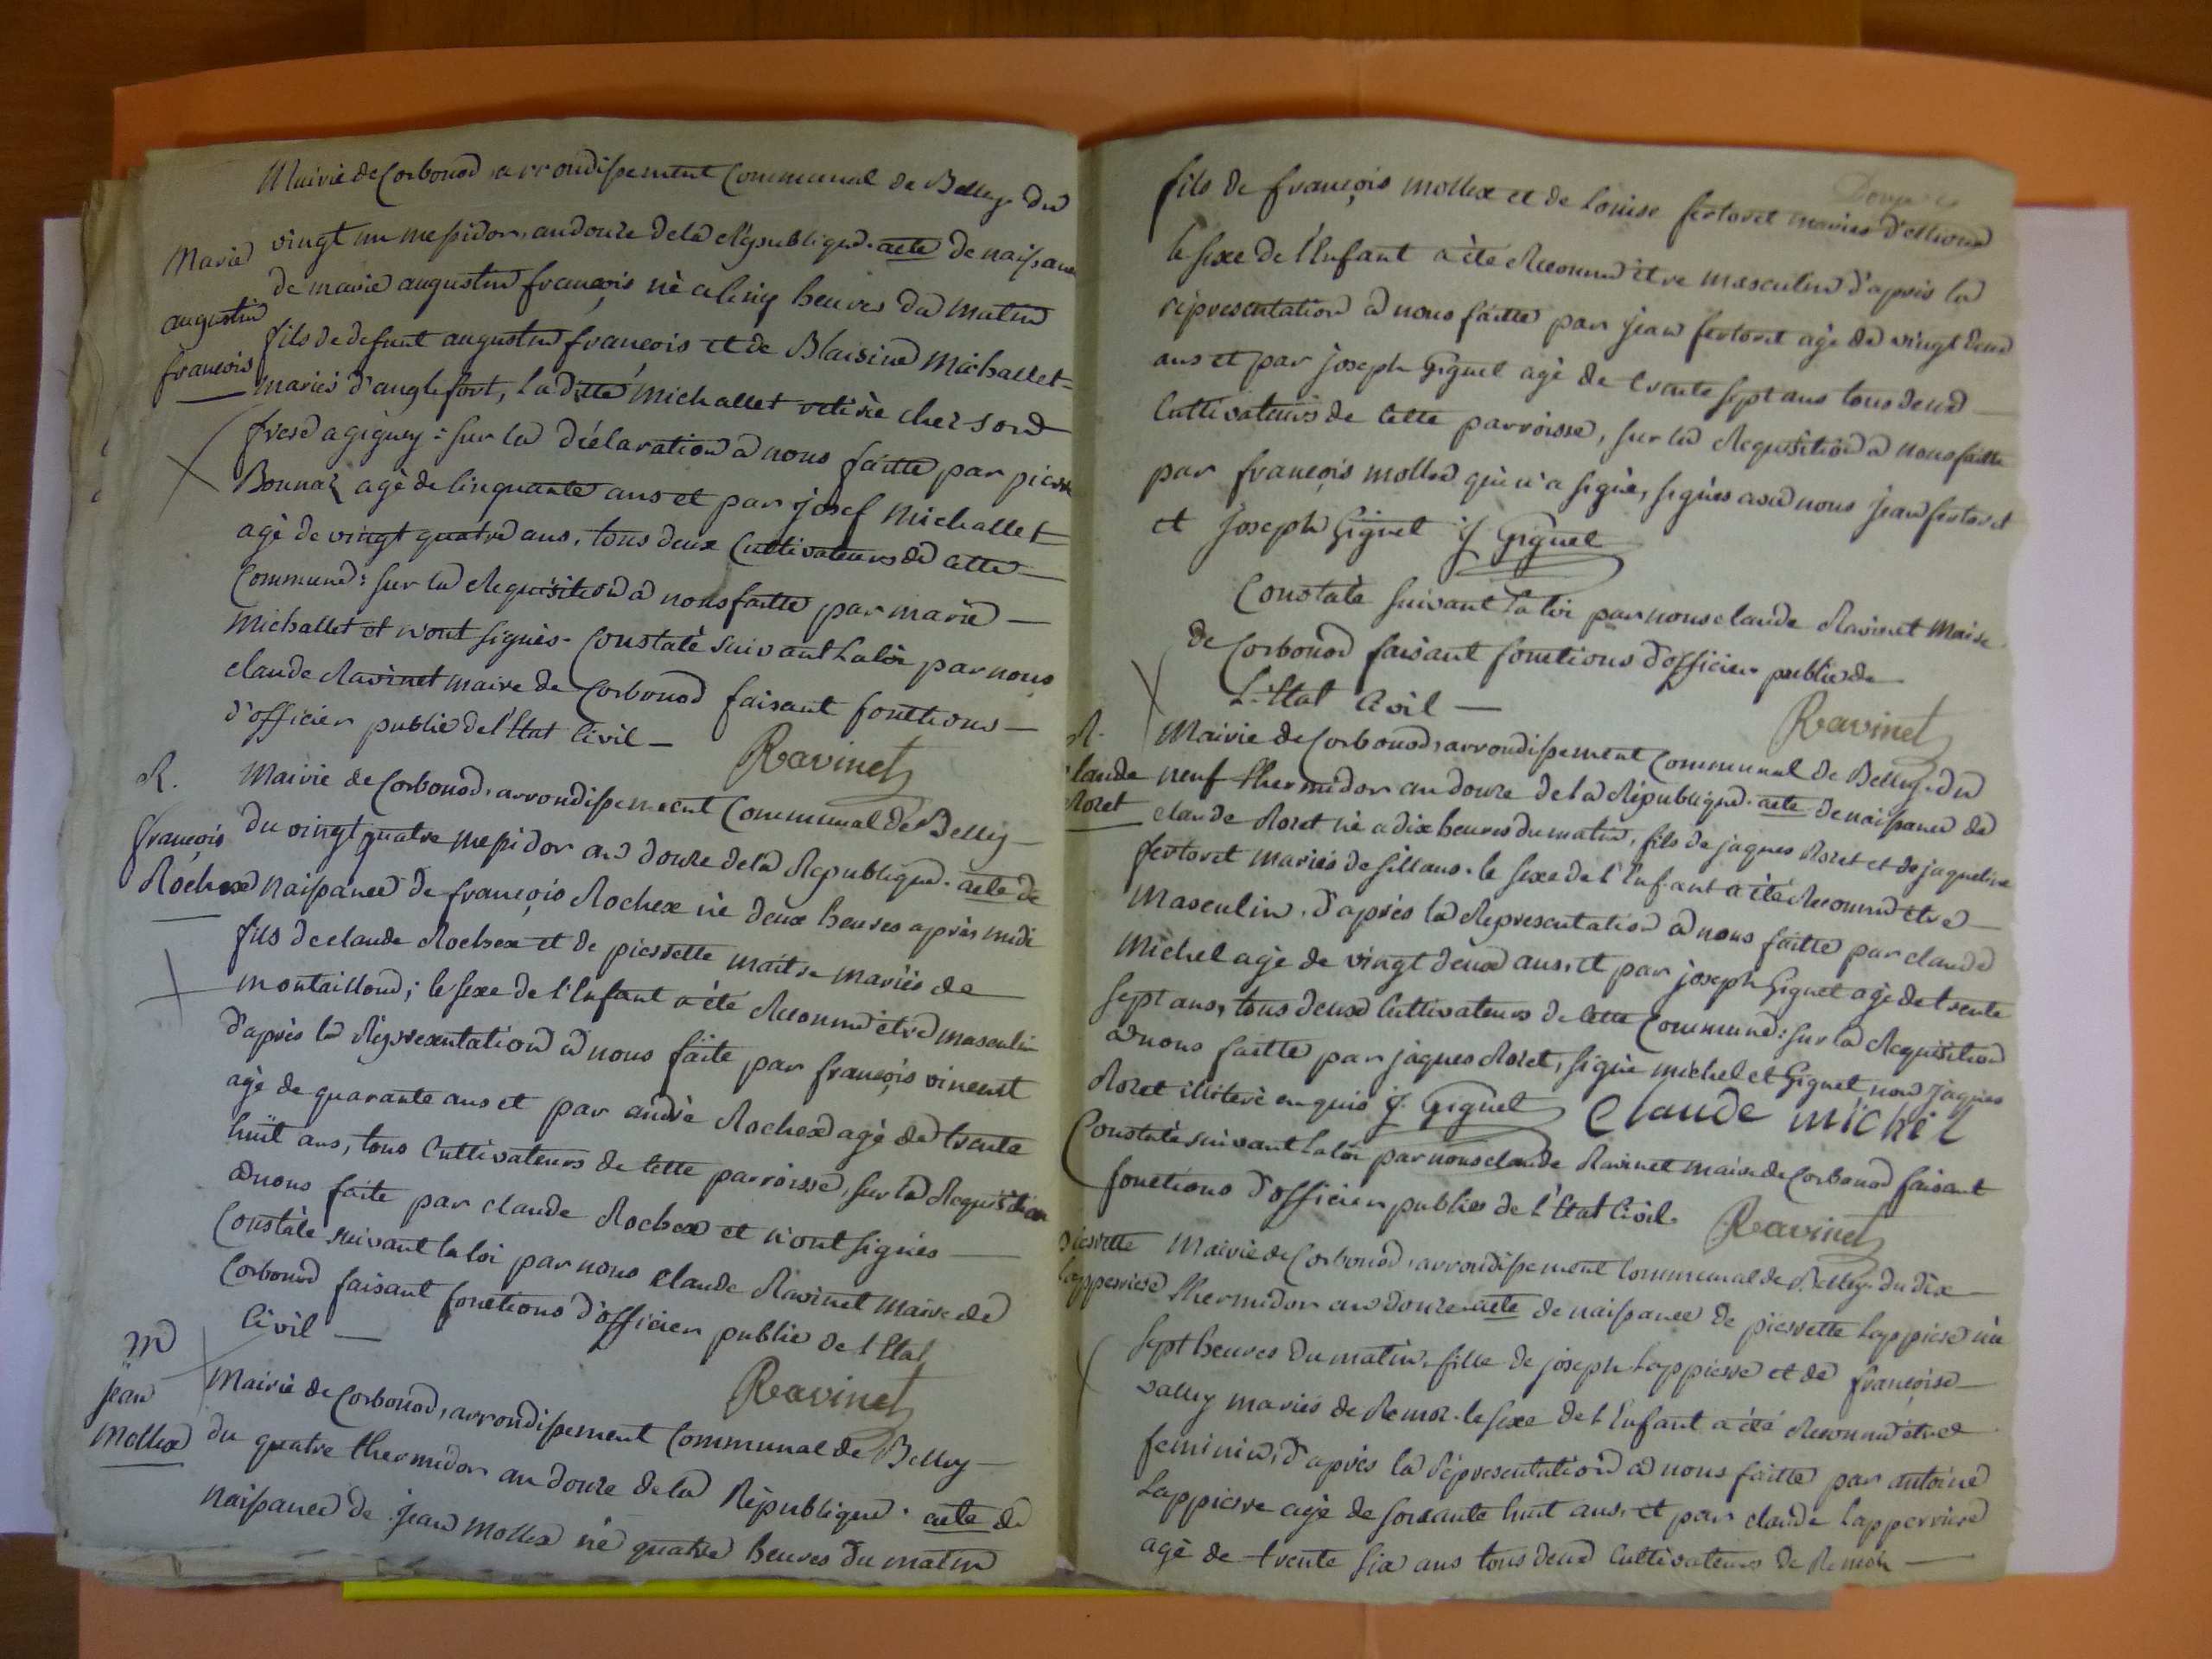 Mairie de Corbonod, arrondissement Communal de Belley. Du
Marie
augustin
françois
vingt un messidor, an douze de la République. acte de naissance
de marie augustin françois né a cinq heures du matin
fils de defunt augustin françois et de Blaisine Michallet
mariés d'anglefort, la ditte Michallet retirée chez son
frere a gignez : sur la déclaration a nous faitte par pierre
Bonnaz agé de cinquante ans et par josef Michallet
agé de vingt quatre ans, tous deux Cultivateurs de cette
Commune : sur la Requisition a nous faitte par marie
Michallet et n'ont signés. Constaté suivant la loi par nous
claude Ravinet maire de Corbonod faisant fonctions
d'officier public de l'Etat Civil
Ravinet
R.
françois
Rochex
Mairie de Corbonod, arrondissement Communal de Belley
du vingt quatre messidor an douze de la Republique. acte de
naissance de françois Rochex né deux heures après midi
fils de claude Rochex et de pierrette maitre mariés de
montailloud ; le sexe de l'Enfant a été Reconnu être masculin
d'après la Représentation a nous faite par françois vincent
agé de quarante ans et par andré Rochex agé de trente
huit ans, tous Cultivateurs de cette parroisse, sur la Requisition
a nous faite par claude Rochex et n'ont signés
Constaté suivant la loi par nous claude Ravinet Maire de
Corbonod faisant fonctions d'officier public de l'Etat
Civil
Ravinet
M
jean
Mollex
Mairie de Corbonod, arrondissement Communal de Belley
du quatre thermidor an douze de la République. acte de
Naissance de jean Mollex né quatre heures du matin
fils de françois mollex et de Louise fertoret mariés
le sexe de l'Enfant a été Reconnu être masculin d'après la
représentation a nous faitte par jean fertoret agé de vingt deux
ans et par joseph Giguet agé de trente sept ans tous deux
Cultivateurs de cette parroisse, sur la Requisition a nous faitte
par françois mollex qui n'a signé, signés avec nous jean fertoret
et joseph Giguet J Giguet
Constaté suivant la loi par nous claude Ravinet Maire
de Corbonod faisant fonctions d'officier public de
L'Etat Civil
Ravinet
R.
claude
Rozet
Mairie de Corbonod, arrondissement Communal de Belley. du
neuf thermidor an douze de la République. acte de naissance de
claude Rozet né a dix heures du matin, fils de jaques Rozet et de jaqueline
fertoret mariés de sillans. le sexe de l'Enfant a été Reconnu être
Masculin, d'après la Representation a nous faitte par claude
Michel agé de vingt deux ans, et par joseph Giguet agé de trente
sept ans, tous deux Cultivateurs de cette Commune : sur la Requisition
a nous faitte par jaques Rozet, signé michel et Giguet, non jaques
Rozet illiteré enquis J. Giguet Claude michel
Constaté suivant la loi par nous claude Ravinet maire de Corbonod faisant
fonctions d'officier public de l'Etat Civil.
Ravinet
pierrette
lapperriere
Mairie de Corbonod, arrondissement Communal de Belley. du dix
thermidor an douze acte de naissance de pierrette née
sept heures du matin, fille de joseph Lappierre et de françoise
vallez mariés de Remoz. le sexe de l'Enfant a été Reconnu être
feminin, d'après la représentation a nous faitte par antoine
Lappierre agé de soixante huit ans, et par claude lapperriere
agé de trente six ans tous deux Cultivateurs de Remoz